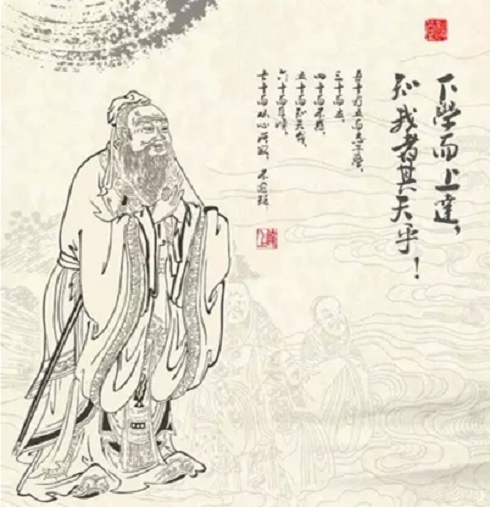 下学而上達，
知我者其天乎！
吾十有五而志于学，
三十而立，
四十而不惑，
五十而知天命，
六十而耳順，
七十而从心所欲，不逾矩。